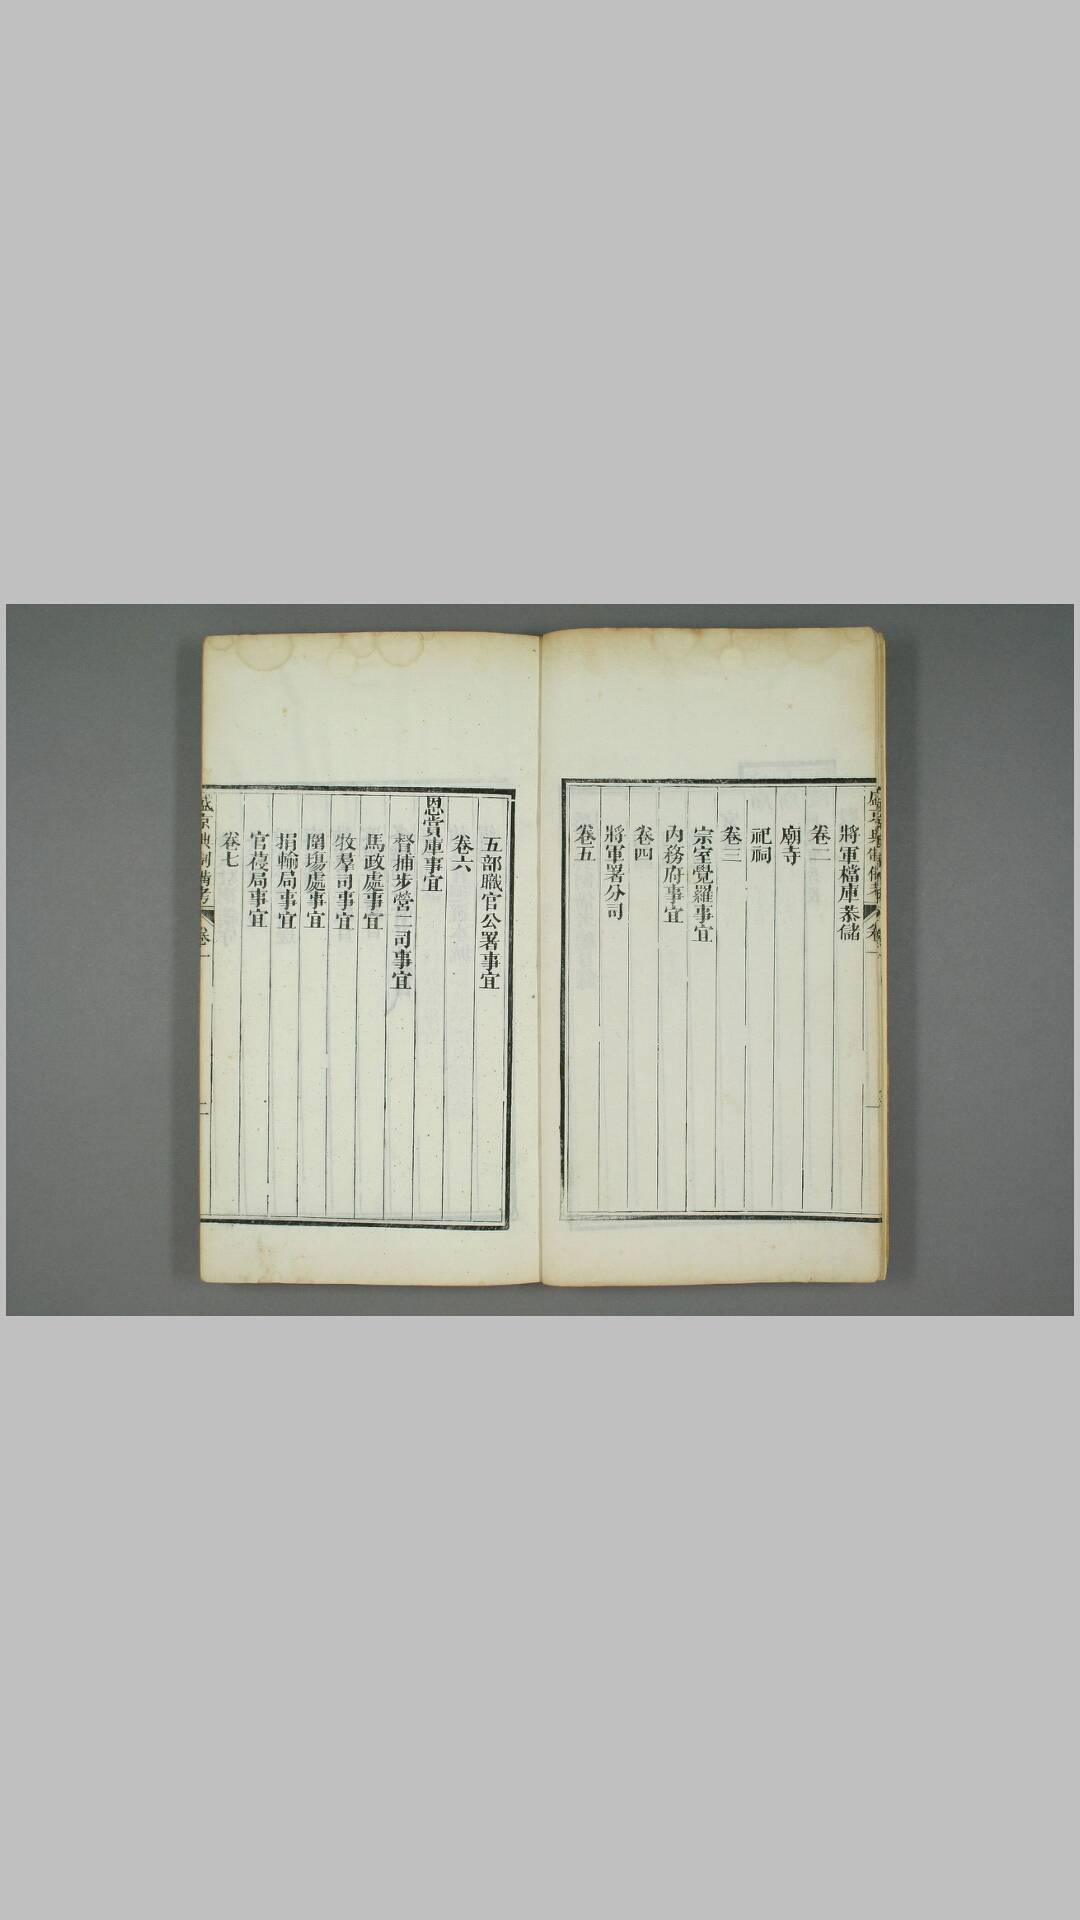 將軍檔庫恭儲
卷二
廟寺
祀祠
卷三
宗室覺羅事宜
內務府事宜
卷四
將軍署分司
卷五
五部職官公署事宜
卷六
恩賞庫事宜
督捕步營二司事宜
馬政處事宜
牧羣司事宜
圍場處事宜
捐輸局事宜
官葠局事宜
卷七
盛京典制備考
卷一
二